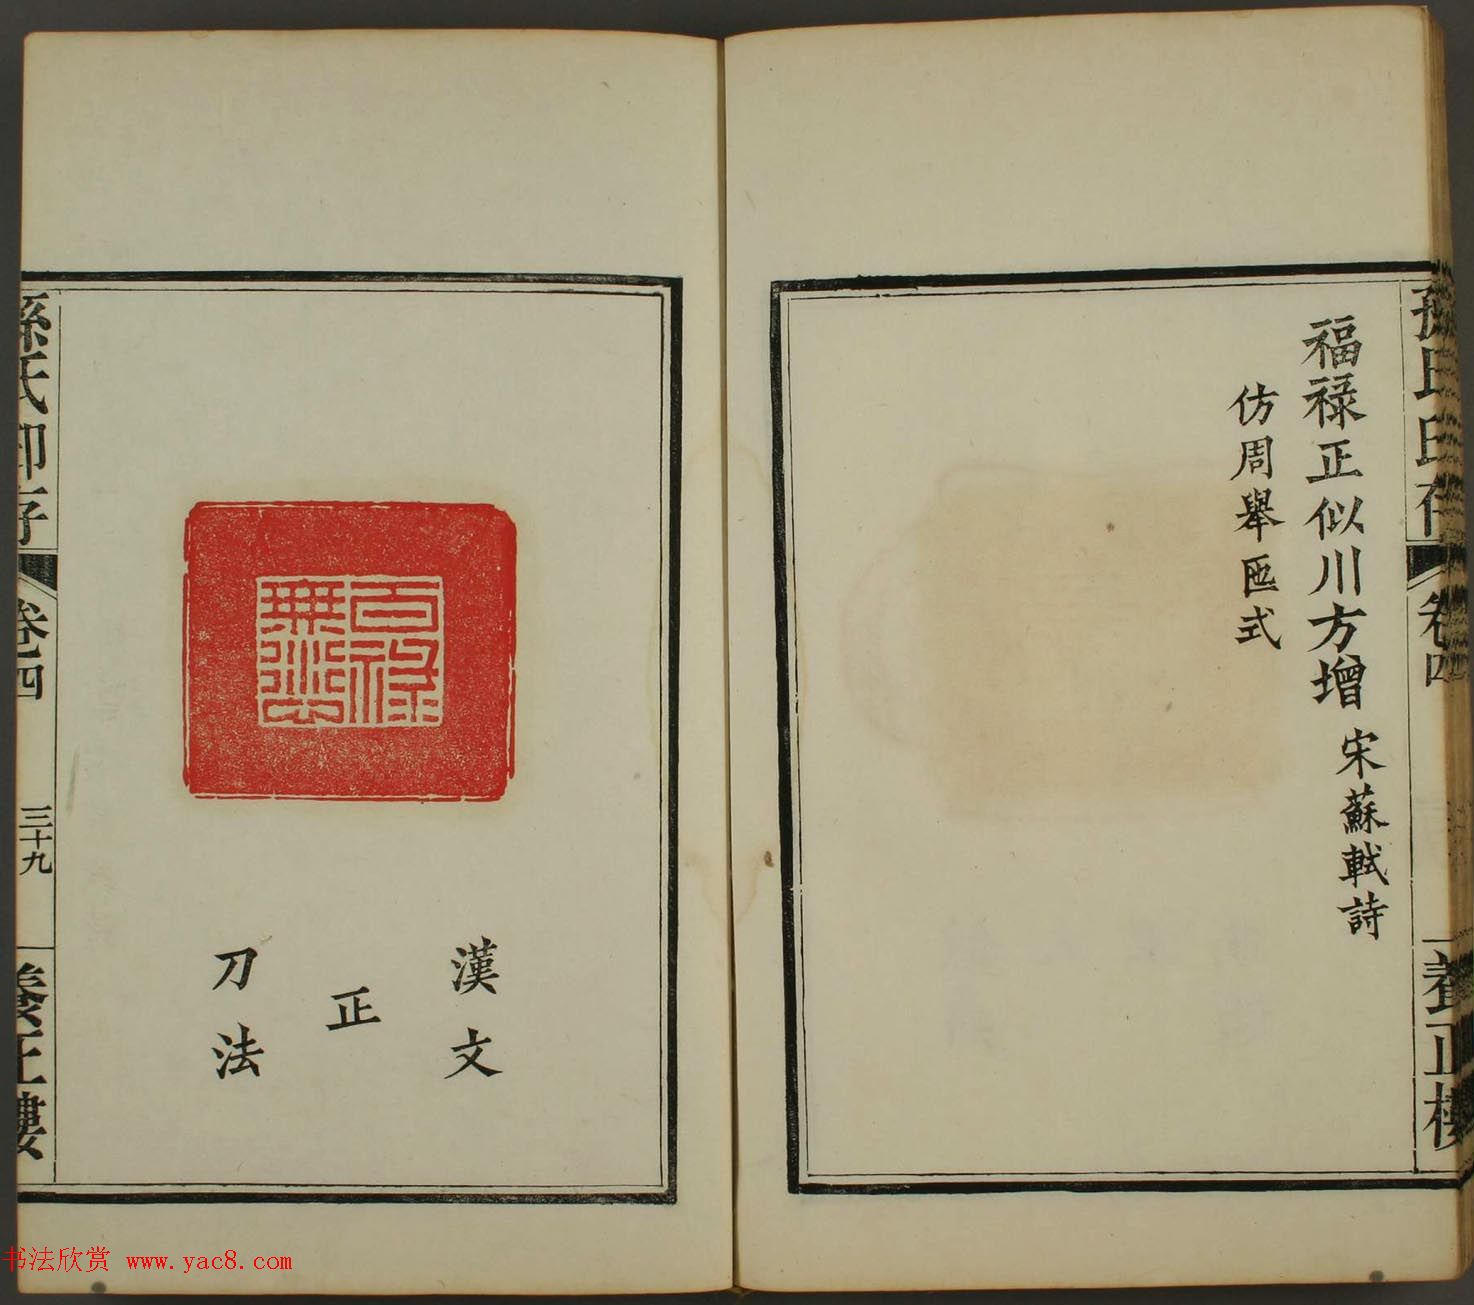 孫氏印存
卷四
養正樓
福祿正似川方增 宋蘇軾詩
仿周舉匜式
百祿
無災
漢文
正
刀法
孫氏印存
卷四
三十九
養正樓
书法欣赏 www.yac8.com